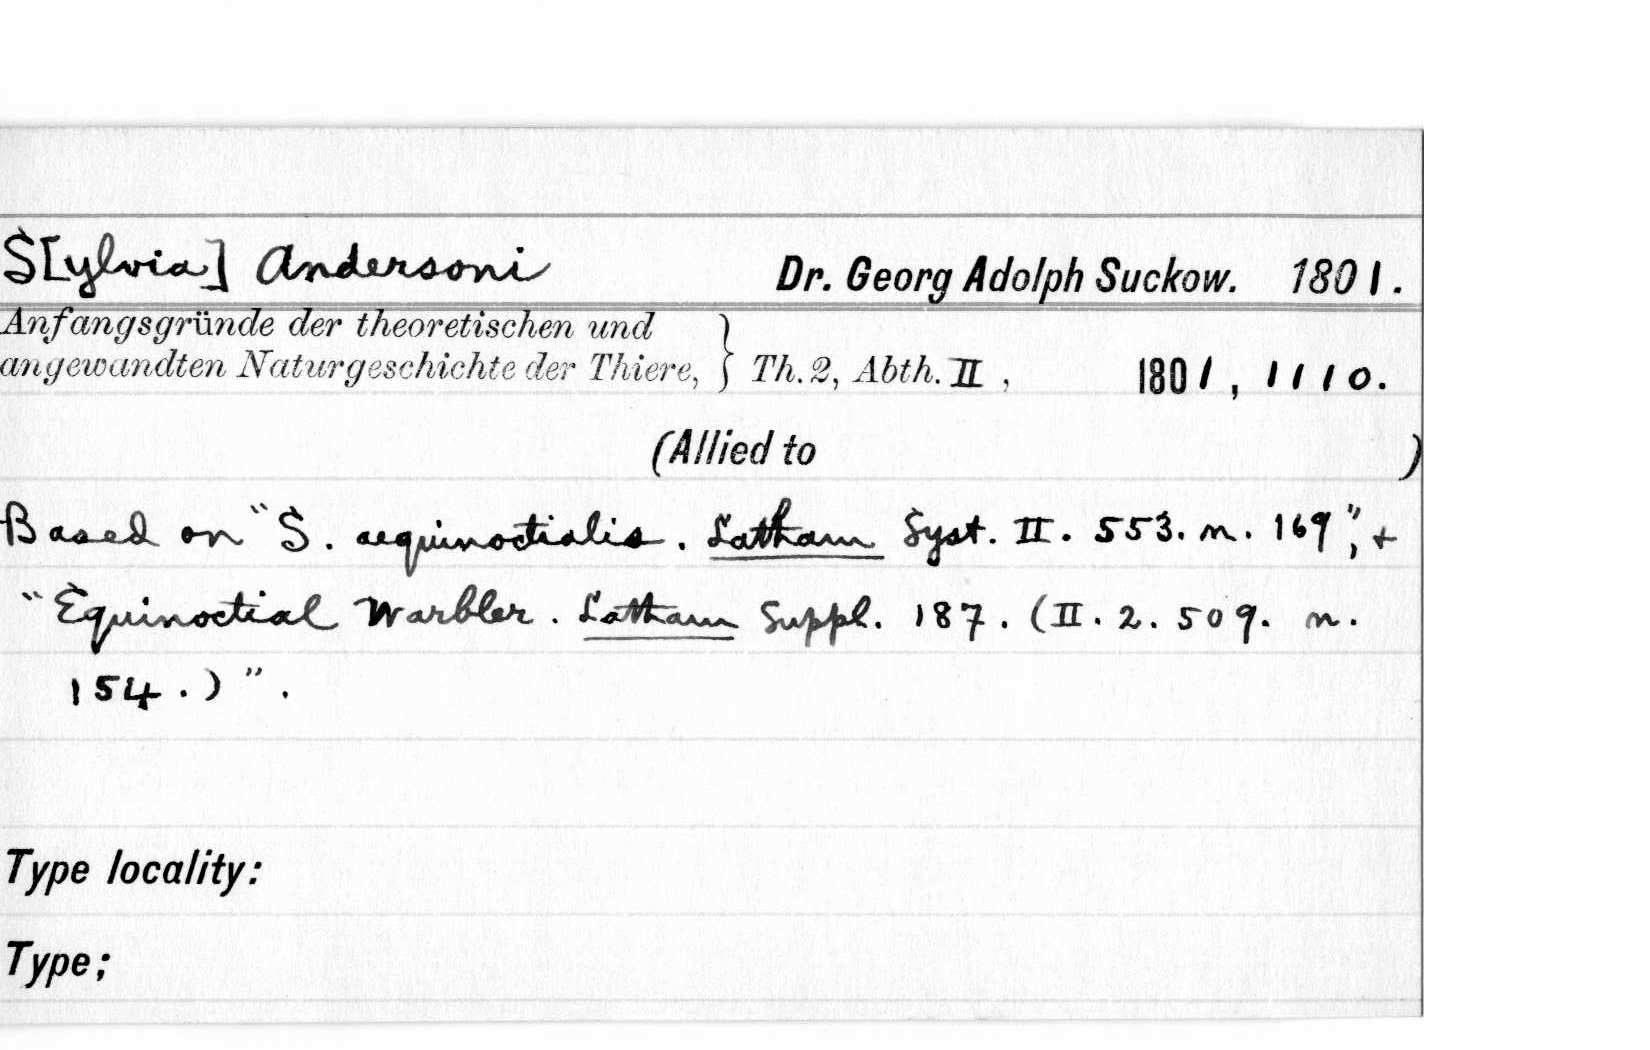 S[ylvia] Andersoni Dr. Georg Adolph Suckow. 1801.
Anfangsgründe der theoretischen und
angewandten Naturgeschichte der Thiere, } Th. 2, Abth. II, 1801, 1110.
(Allied to )
Based on "S. aequinoctialis. Latham Syst. II. 553. n. 169", +
"Equinoctial Warbler. Latham Suppl. 187. (II. 2. 509. n.
154.)".
Type locality:
Type;